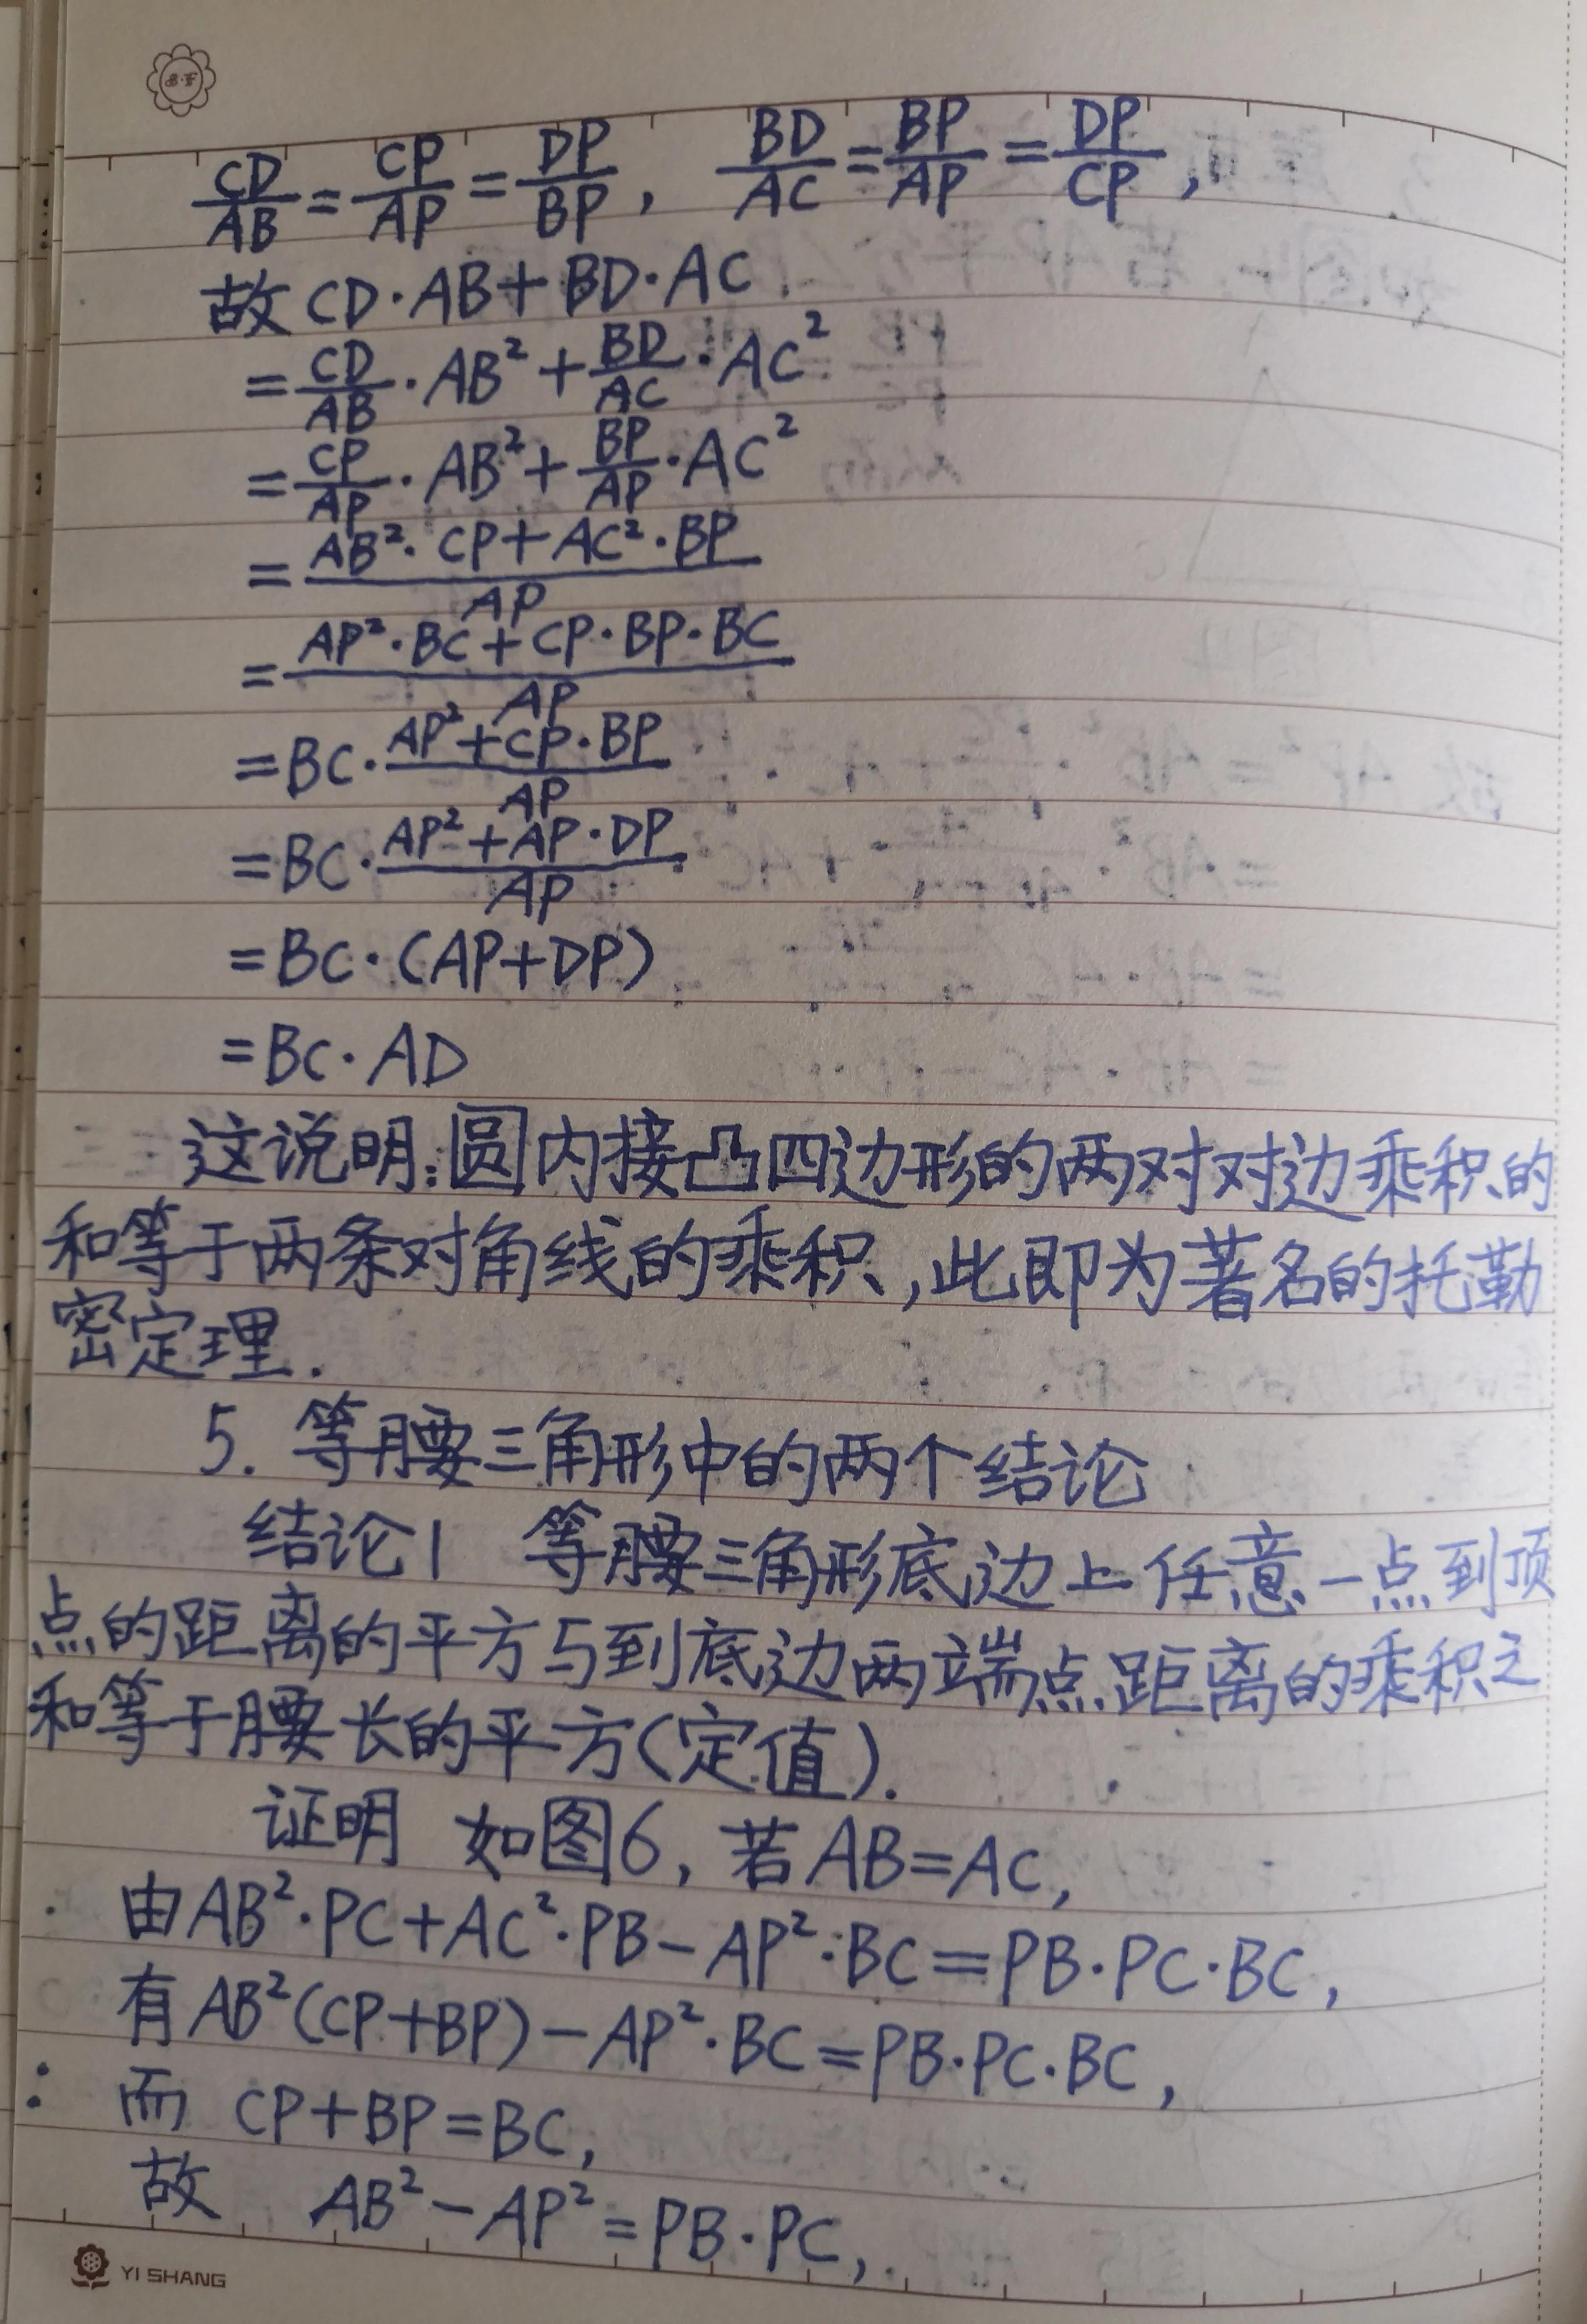 CD/AB = CP/AP = DP/BP, BD/AC = BP/AP = DP/CP,
故 CD·AB+BD·AC
= CD/AB · AB² + BD/AC · AC²
= CP/AP · AB² + BP/AP · AC²
= (AB²·CP+AC²·BP)/AP
= (AP²·BC+CP·BP·BC)/AP
= BC· (AP²+CP·BP)/AP
= BC· (AP²+AP·DP)/AP
= BC·(AP+DP)
= BC·AD
这说明:圆内接凸四边形的两对对边乘积的
和等于两条对角线的乘积,此即为著名的托勒
密定理.
5. 等腰三角形中的两个结论
结论1 等腰三角形底边上任意一点到顶
点的距离的平方与到底边两端点距离的乘积之
和等于腰长的平方(定值).
证明 如图6, 若AB=AC,
由AB²·PC+AC²·PB-AP²·BC=PB·PC·BC,
有AB²(CP+BP)-AP²·BC=PB·PC·BC,
而 CP+BP=BC,
故 AB²-AP²=PB·PC,
YI SHANG